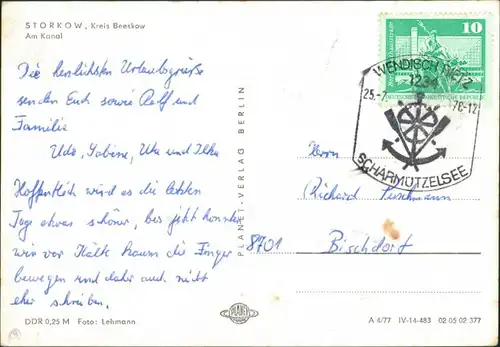 STORKOW, Kreis Beeskow
Am Kanal
Die herzlichsten Urlaubsgrüße
senden Euch sowie Rolf und
Familie
Udo, Sabine, Uta und Ilka
Hoffentlich wird es die letzten
Tage etwas schöner, bis jetzt konnten
wir vor Kälte kaum die Finger
bewegen und daher auch nicht
eher schreiben.
DDR 0,25 M Foto: Lehmann
PLANET-VERLAG BERLIN
PLANET
10
WENDISCH RIETZ
1234
25.-7. 78-12
SCHARMÜTZELSEE
Herrn
Richard
8701 Bischdorf
A 4/77 IV-14-483 02 05 02 377